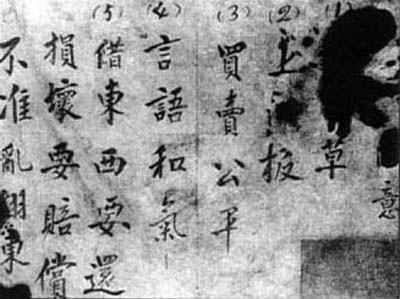 意
(1) 草
(2) 上板
(3) 買賣公平
(4) 言語和氣
(5) 借東西要還
損壞要賠償
不准亂